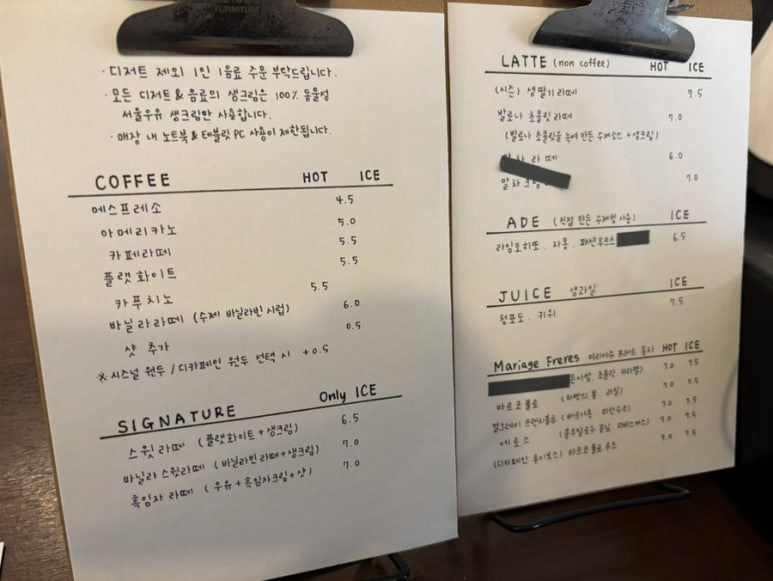 FURNITURE
· 디저트 제외 1인 1음료 주문 부탁드립니다.
· 모든 디저트 & 음료의 생크림은 100% 동물성
서울우유 생크림만 사용합니다.
· 매장 내 노트북 & 테블릿 PC 사용이 제한됩니다.
COFFEE HOT ICE
에스프레소 4.5
아메리카노 5.0
카페라떼 5.5
플랫화이트 5.5
카푸치노 5.5
바닐라라떼 (수제 바닐라빈 시럽) 6.0
샷 추가 0.5
※ 시즈널 원두 / 디카페인 원두 선택 시 +0.5
SIGNATURE Only ICE
스윗라떼 (플랫화이트 + 생크림) 6.5
바닐라 스윗라떼 (바닐라빈 라떼 + 생크림) 7.0
흑임자 라떼 (우유 + 흑임자크림 + 샷) 7.0
LATTE (non coffee) HOT ICE
(시즌) 생딸기라떼 7.5
발로나 초콜릿 라떼 7.0
(발로나 초콜릿을 녹여 만든 수제소스 + 생크림)
라떼 6.0
말차크림 7.0
ADE (직접 만든 수제청 사용) ICE
라임모히또. 자몽. 패션후르츠 6.5
JUICE 생과일 ICE
청포도. 키위 7.5
Mariage Freres 마리아쥬 프레르 홍차 HOT ICE
초콜릿 카라멜) 7.0 7.5
마르코폴로 (티벳의 꽃. 과일) 7.0 7.5
얼그레이 프렌치블루 (베르가못. 7.0 7.5
에로스 (블루말로우 꽃잎. 히비스커스) 7.0 7.5
(디카페인 루이보스) 마르코 폴로 루즈 7.0 7.5